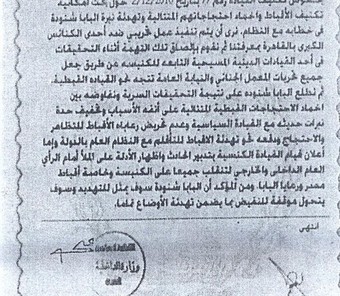 تكثيف الأقباط واخماد احتجاجاتهم المتتالية وتهدئة نبرة البابا شنودة
في خطابه مع النظام. نرى أن يتم تنفيذ عمل تخريبي ضد أحدى الكنائس
الكبرى بالقاهرة بمعرفتنا ثم نقوم بإلصاق تلك التهمة أثناء التحقيقات
فى أحد القيادات الدينية المسيحية التابعه للكنيسه عن طريق جعل
جميع تحريات المعمل الجنائي والنيابة العامة تتجه نحو القيادة القبطية.
ثم نطلع البابا شنودة على نتيجة التحقيقات السرية ونفاوضه بين
اخماد الاحتجاجات القبطية المتتالية على أتفه الأسباب وتخفيف حدة
نبرات حديثه مع القيادة السياسية وعدم تحريض رعاياه الأقباط للتظاهر
والاحتجاج ودفعه نحو تهدئة الأقباط للتأقلم مع النظام العام بالدولة وإما
أعلان قيام القيادة الكنسية بتدبير الحادث واظهار الأدلة على الملأ أمام الرأي
العام الداخلى والخارجى لتنقلب جميعا على الكنيسة وخاصة أقباط
مصر ورعايا البابا. ومن المؤكد أن البابا شنودة سوف يمثل للتهديد وسوف
يتحول موقفة للنقيض بما يضمن تهدئة الأوضاع تماما.
انتهى
وزارة الداخلية